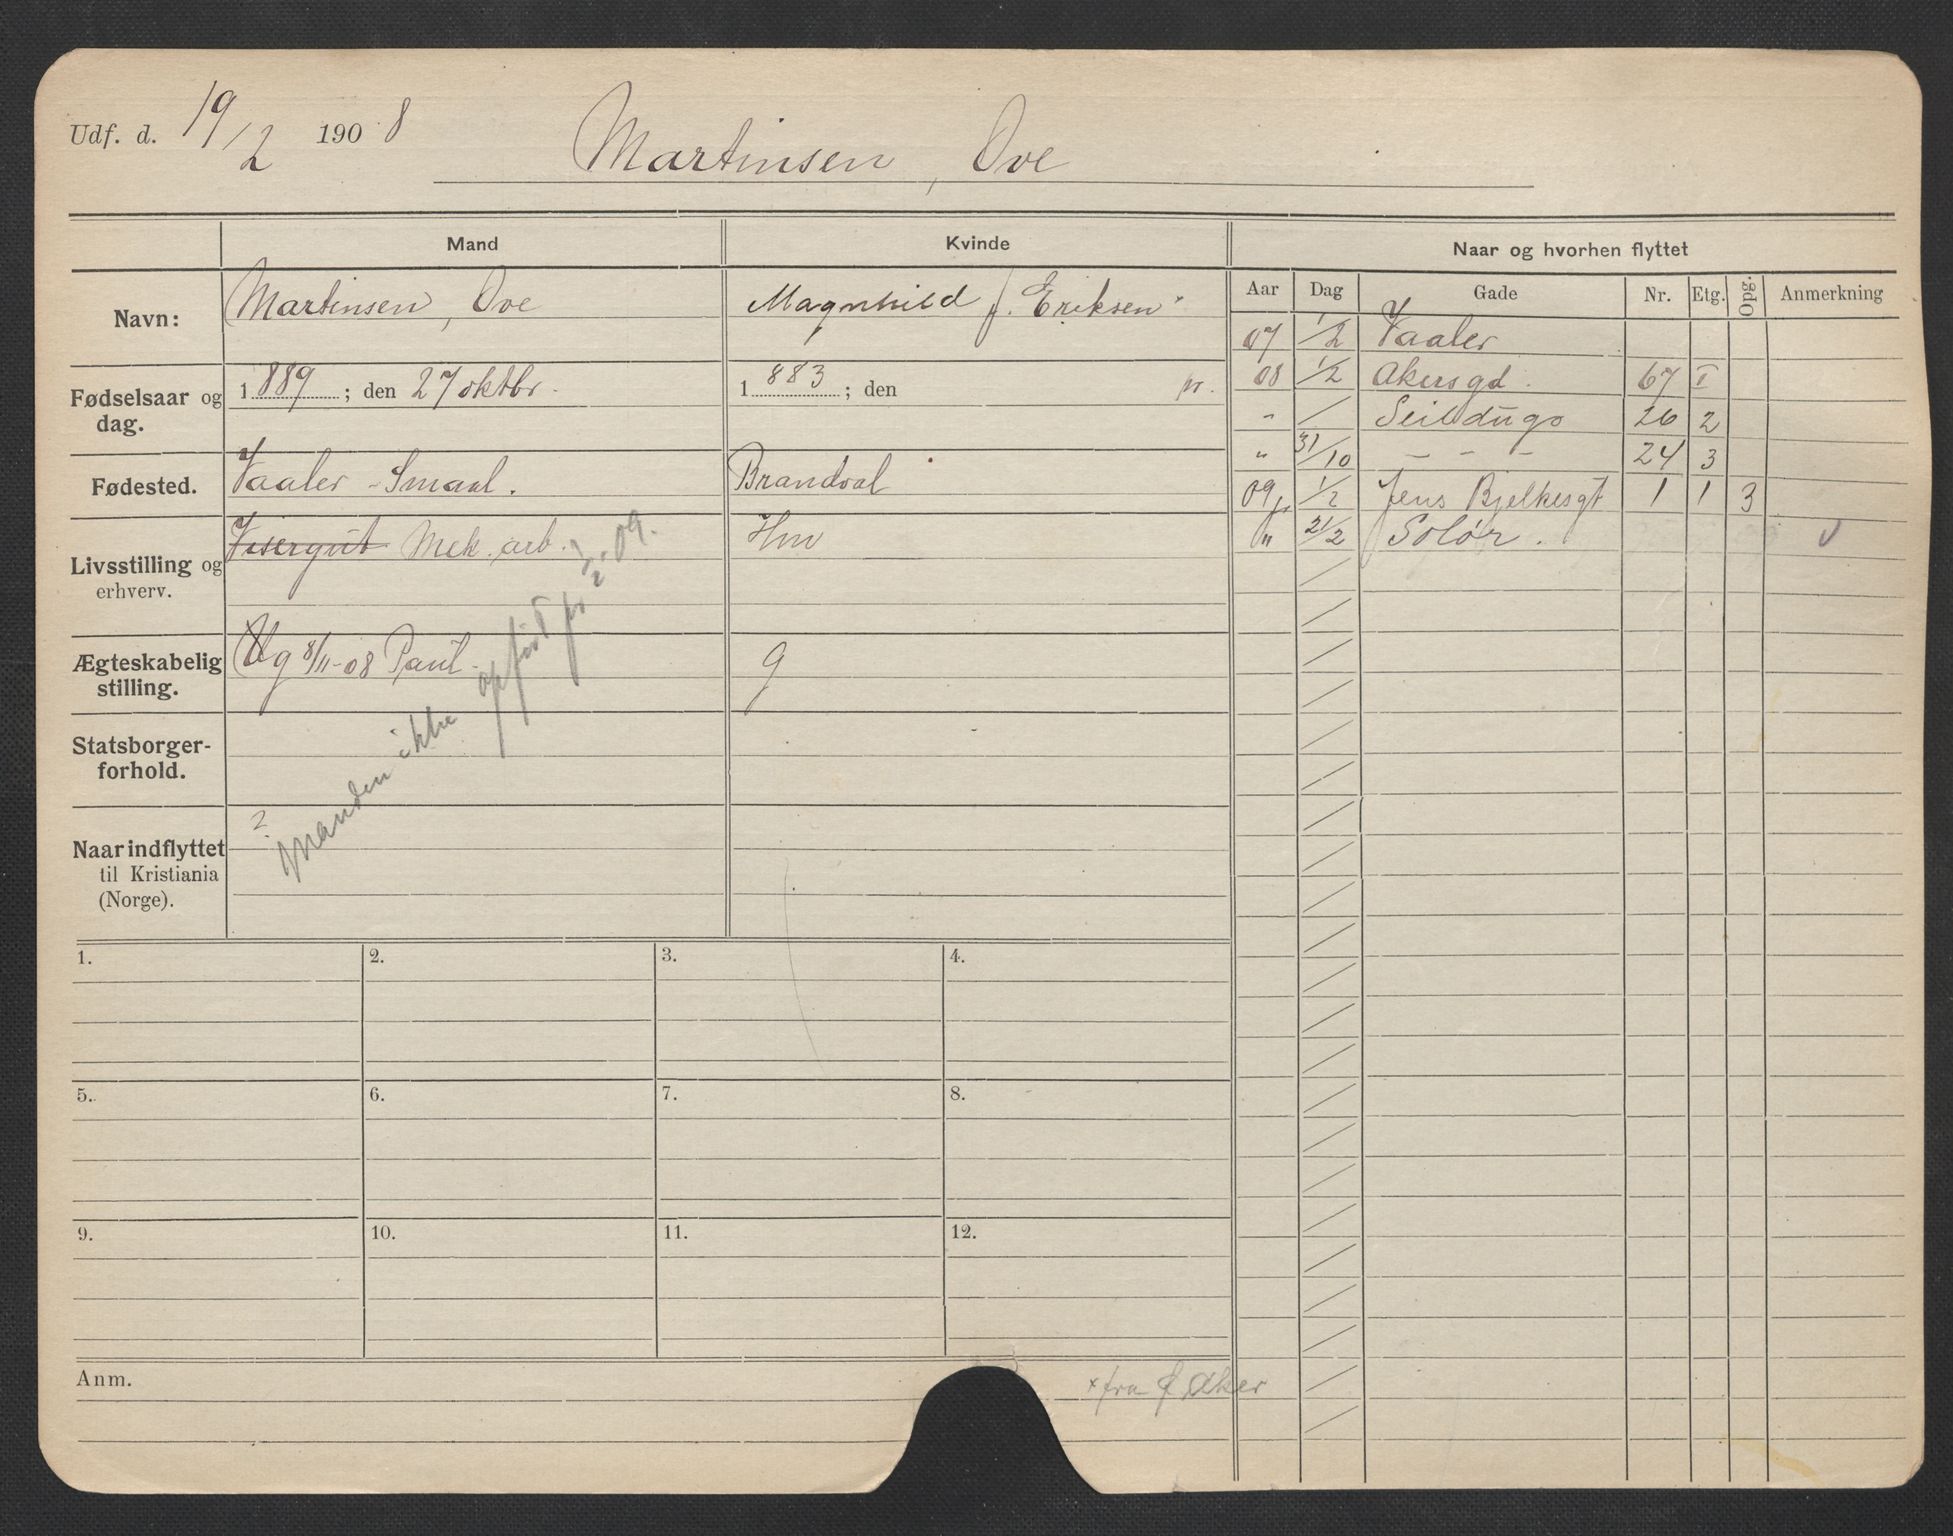 Udf. d. 19/2 1908 Martinsen, Ove
Mand Kvinde Naar og hvorhen flyttet
Aar Dag Gade Nr. Etg. Opg. Anmerkning
Navn: Martinsen, Ove Magnhild f. Eriksen
Fødselsaar og dag. 1889; den 27 oktbr. 1883; den
Fødested. Vaaler - Smaal. Brandval
Livsstilling og erhverv. Visergut Mek. arb. Hm
Ægteskabelig stilling. Ug 8/11-08 Paul. g
Statsborger-
forhold.
Naar indflyttet
til Kristiania
(Norge).
?
Manden ikke opført pr 1/2-09.
07 1/2 Vaaler
08 1/2 Akersgd. 67 I
" / Seildugs 26 2
" 31/10 - - - 24 3
09 1/2 Jens Bjelkesgt 1 1 3
" 21/2 Solør. v
1. 2. 3. 4.
5. 6. 7. 8.
9. 10. 11. 12.
Anm.
× fra Aker